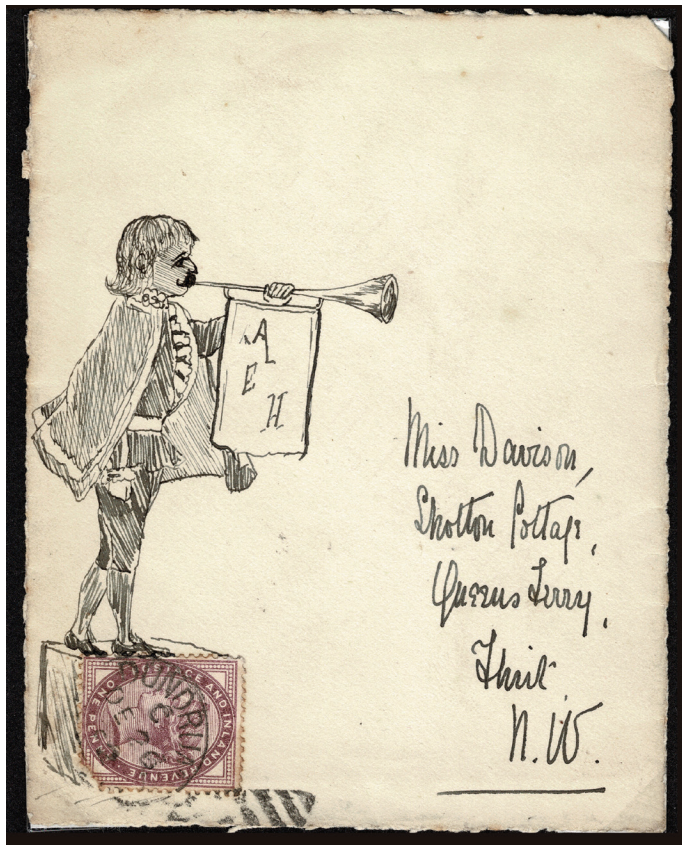 A
E
H
Miss Davison,
Shotton Cottage,
Queens Ferry,
Flint.
N.W.
POSTAGE AND INLAND REVENUE ONE PENNY
DUNDRUM
C
DE